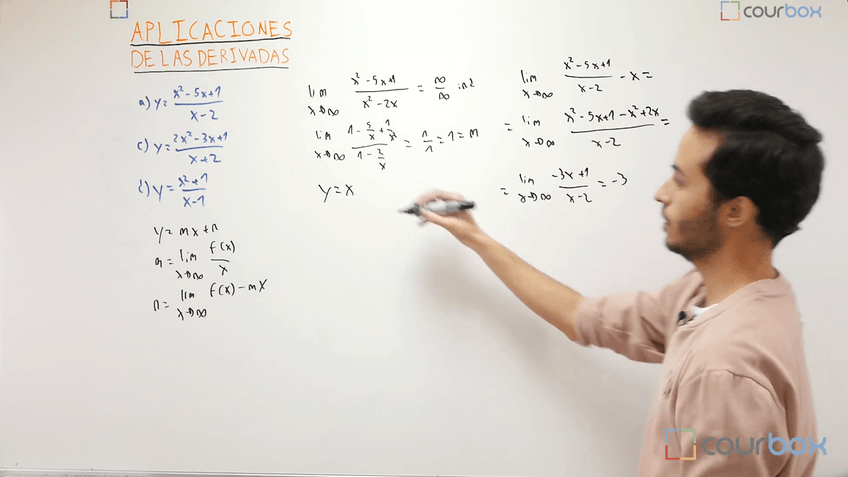 courbox
APLICACIONES
DE LAS DERIVADAS
a) y= x²-5x+1 / x-2
c) y= 2x²-3x+1 / x+2
d) y= x²+1 / x-1
y= mx+n
m= lim x→∞ f(x) / x
n= lim x→∞ f(x)-mx
lim x→∞ x²-5x+1 / x²-2x = ∞/∞ ind
lim x→∞ 1-5/x+1/x² / 1-2/x = 1/1 =1=m
y=x
lim x→∞ x²-5x+1 / x-2 -x=
= lim x→∞ x²-5x+1-x²+2x / x-2 =
= lim x→∞ -3x+1 / x-2 =-3
courbox